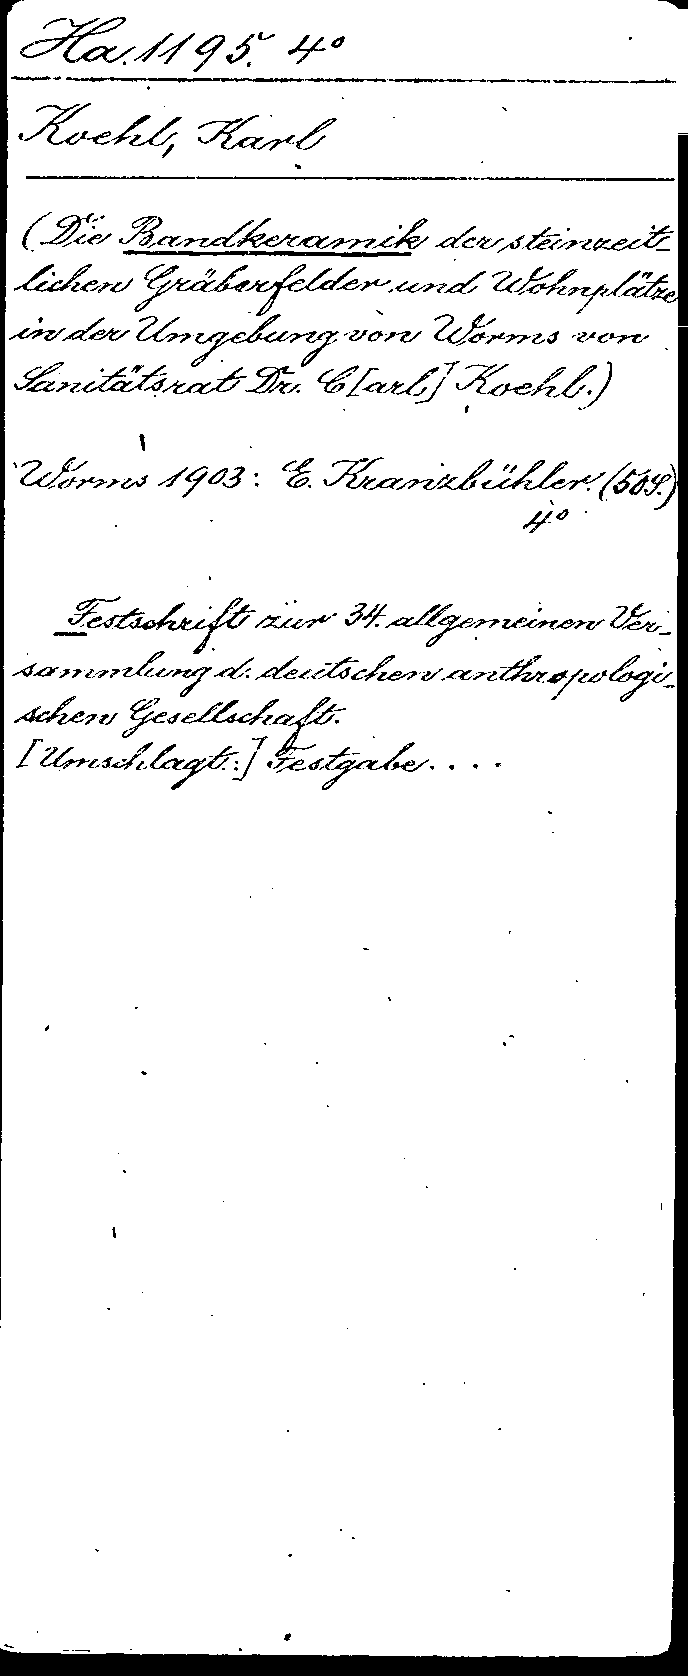 Ha. 1195. 4°
Koehl, Karl
(Die Bandkeramik der steinzeit-
lichen Gräberfelder und Wohnplätze
in der Umgebung von Worms von
Sanitätsrat Dr. C[arl] Koehl.)
Worms 1903: E. Kranzbühler. (50 S.)
4°
Festschrift zur 34. allgemeinen Ver-
sammlung d. deutschen anthropologi-
schen Gesellschaft.
[Umschlagt.:] Festgabe....